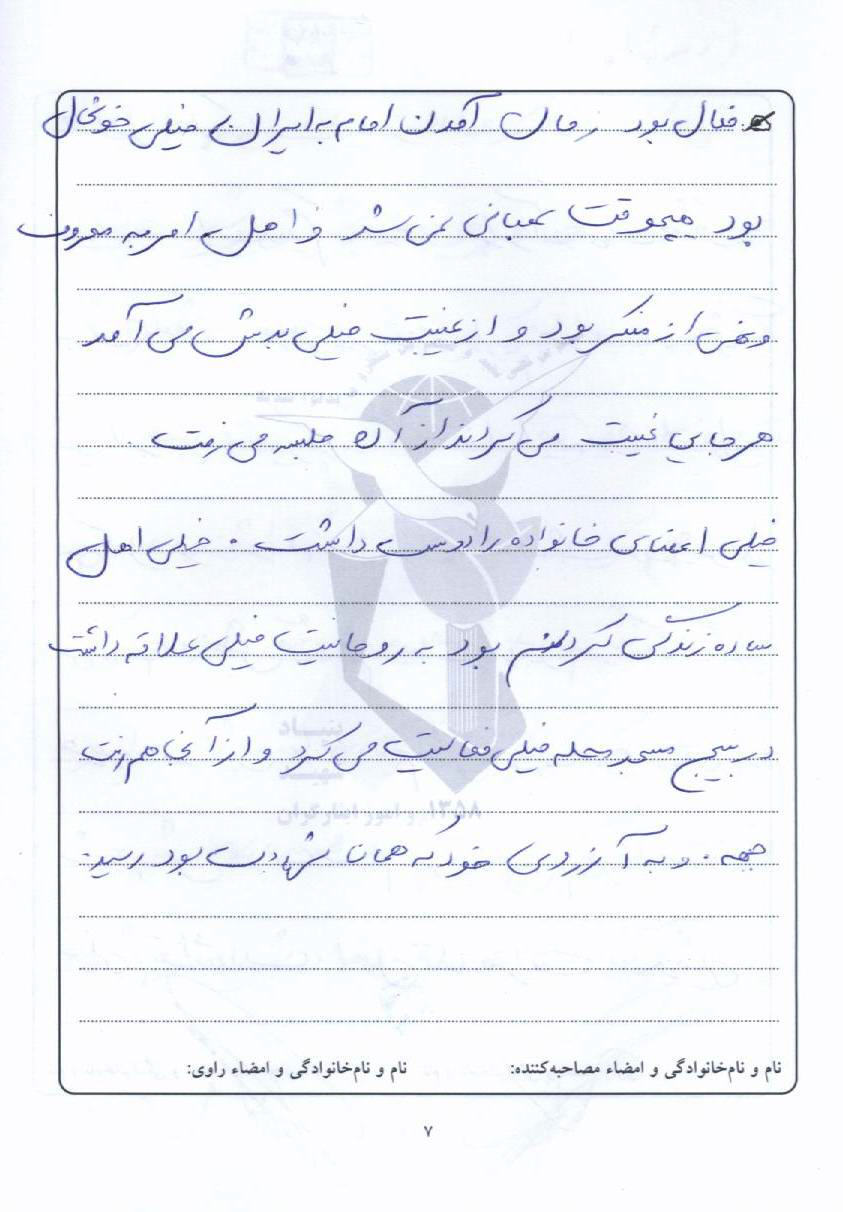 فعال بود زمان آمدن امام به ایران خیلی خوشحال
بود هیچوقت عصبانی نمی شد و اهل امر به معروف
و نهی از منکر بود و از غیبت خیلی بدش می آمد
هر جایی غیبت می کردند از آن جلسه می رفت .
خیلی اعضای خانواده را دوست داشت . خیلی اهل
ساده زندگی کردن بود به روحانیت خیلی علاقه داشت
در بسیج مسجد محله خیلی فعالیت می کرد و از آنجا هم رفت
جبهه . و به آرزوی خود که همانا شهادت بود رسید.
بنیاد
شهید
و امور ایثارگران ۱۳۵۸
نام و نام‌خانوادگی و امضاء مصاحبه‌کننده: نام و نام‌خانوادگی و امضاء راوی:
۷